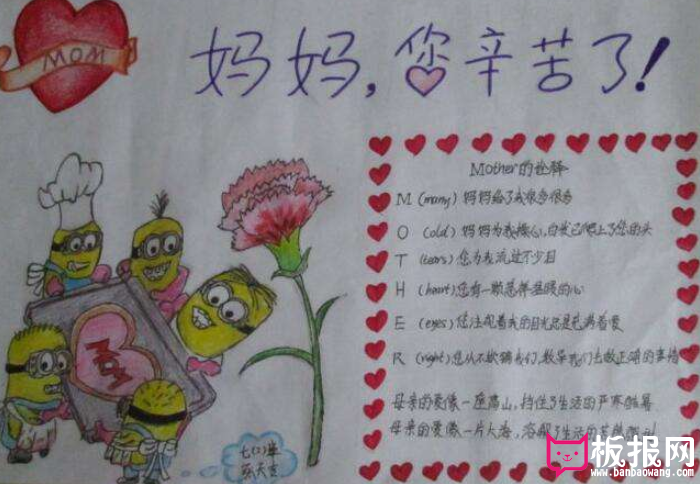 MOM
妈妈,您辛苦了!
Mother的诠释
M (many) 妈妈给了我很多很多
O (old) 妈妈为我操心,白发已爬上了您的头
T (tears) 您为我流过不少泪
H (heart) 您有一颗慈祥温暖的心
E (eyes) 您注视着我的目光总是充满着爱
R (right) 您从不欺骗我们,教导我们去做正确的事情
母亲的爱像一座高山,挡住了生活的严寒酷暑
母亲的爱像一片大海,溶解了生活的苦
MOM
七(2)班
天
板报网
www.banbaowang.com